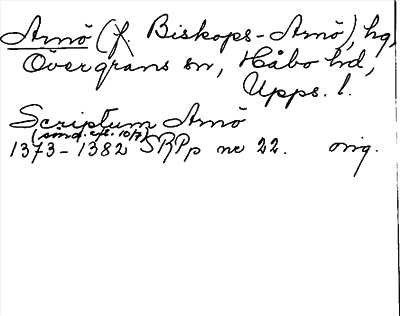 Arnö (f. Biskops-Arnö), hg,
Övergrans sn, Håbo hd,
Upps. l.
Scriptum Arnö
(sönd. efs. 10/7)
1373-1382 SRPp nr 22. orig.